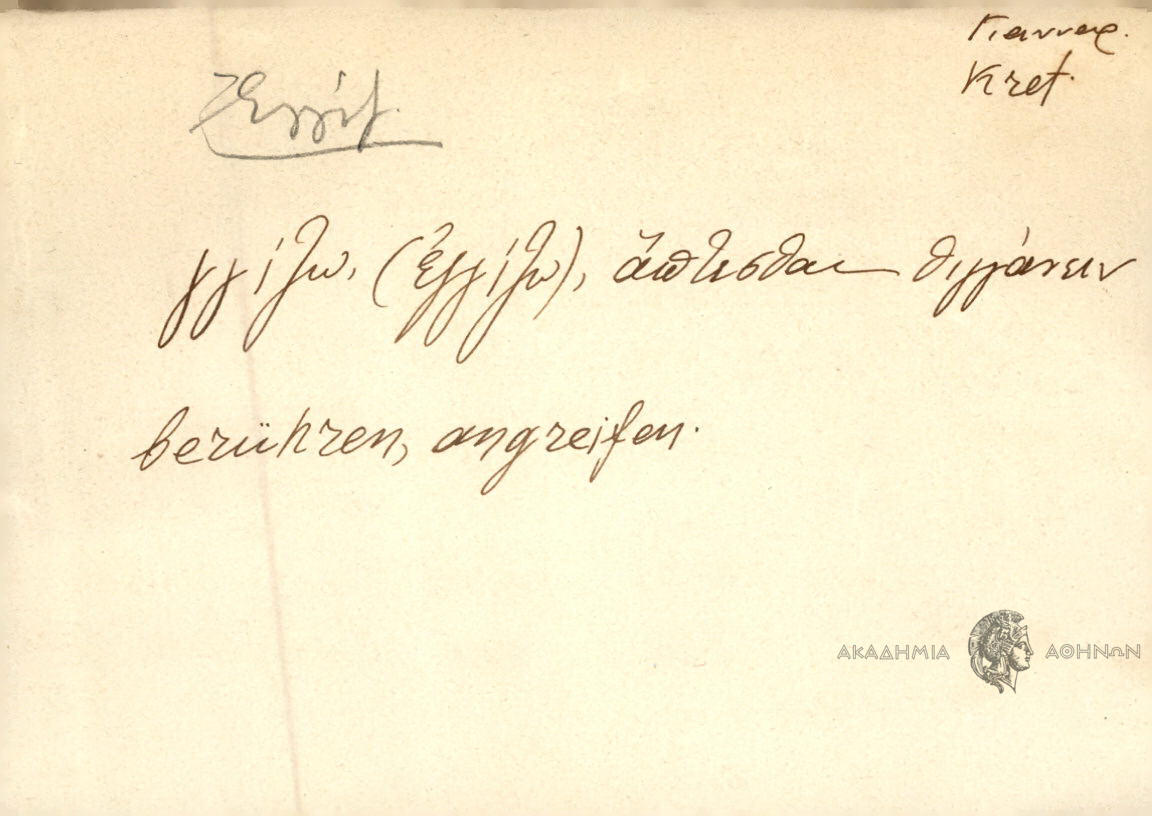 Γιανναρ.
Kret.
Ἐγγίζ.
γγίζω, (ἐγγίζω), ἅπτεσθαι – θιγγάνειν
berühren, angreifen.
ΑΚΑΔΗΜΙΑ ΑΘΗΝΩΝ